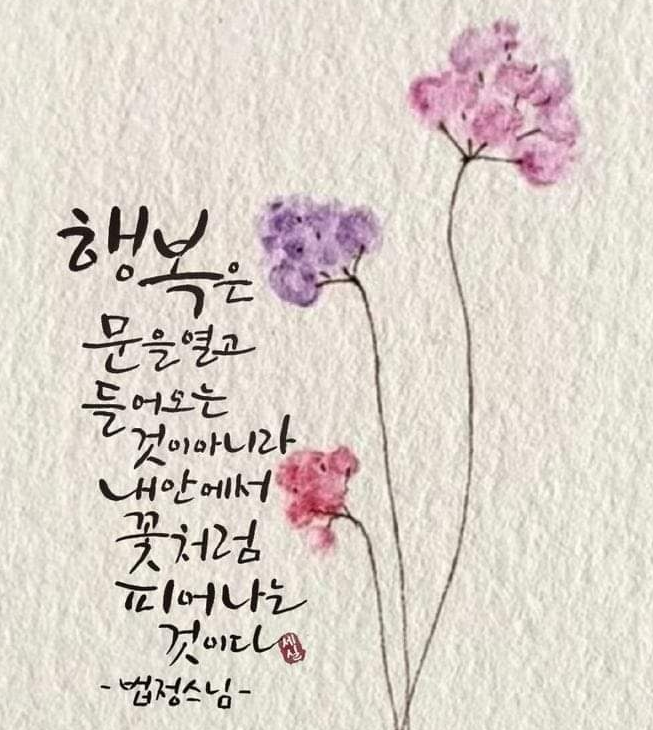 행복은
문을열고
들어오는
것이아니라
내안에서
꽃처럼
피어나는
것이다
세실
-법정스님-